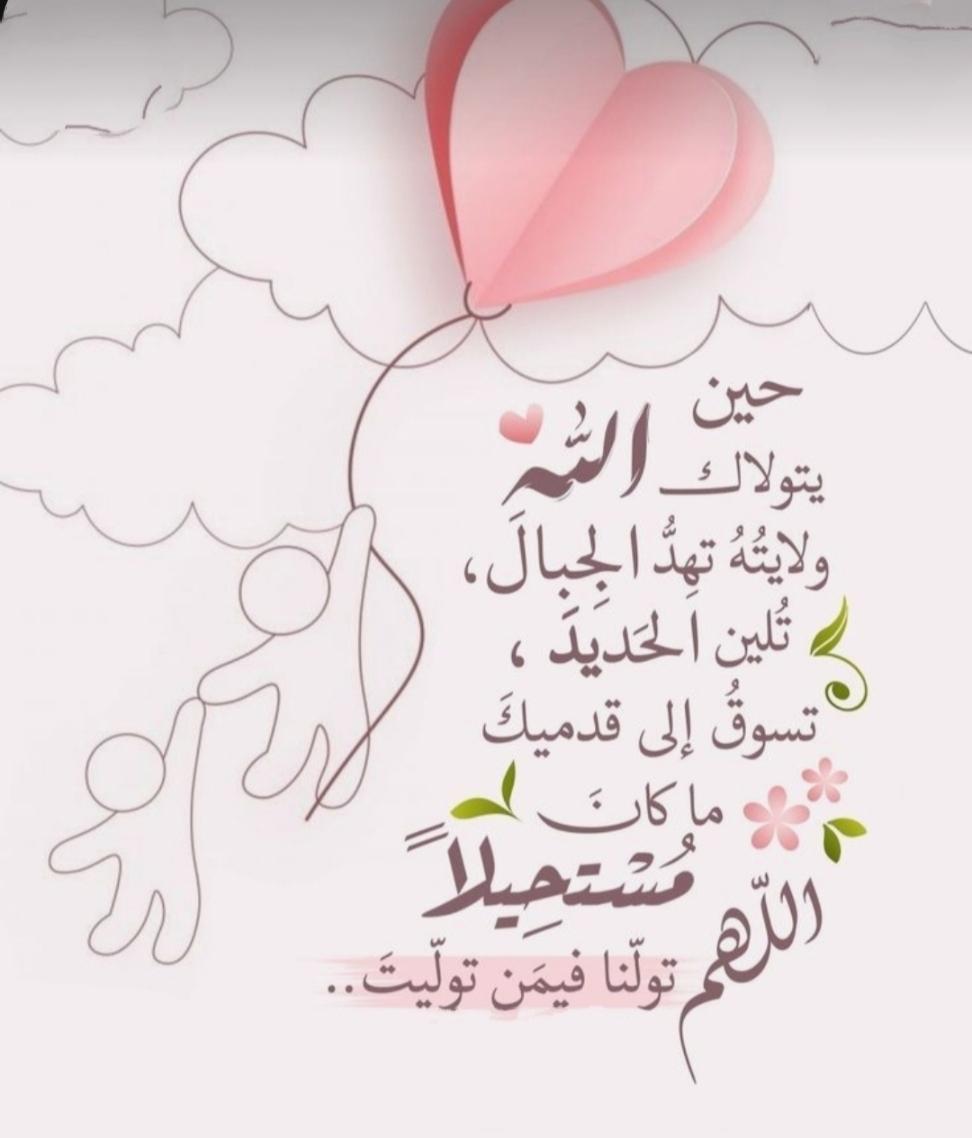 حين
يتولاك الله
ولايتُهُ تهِدُّ الجِبالَ،
تُلين الحَديدَ ،
تسوقُ إلى قدميكَ
ما كانَ
مُسْتحِيلاً
اللّهم
تولّنا فيمَن تولّيتَ..